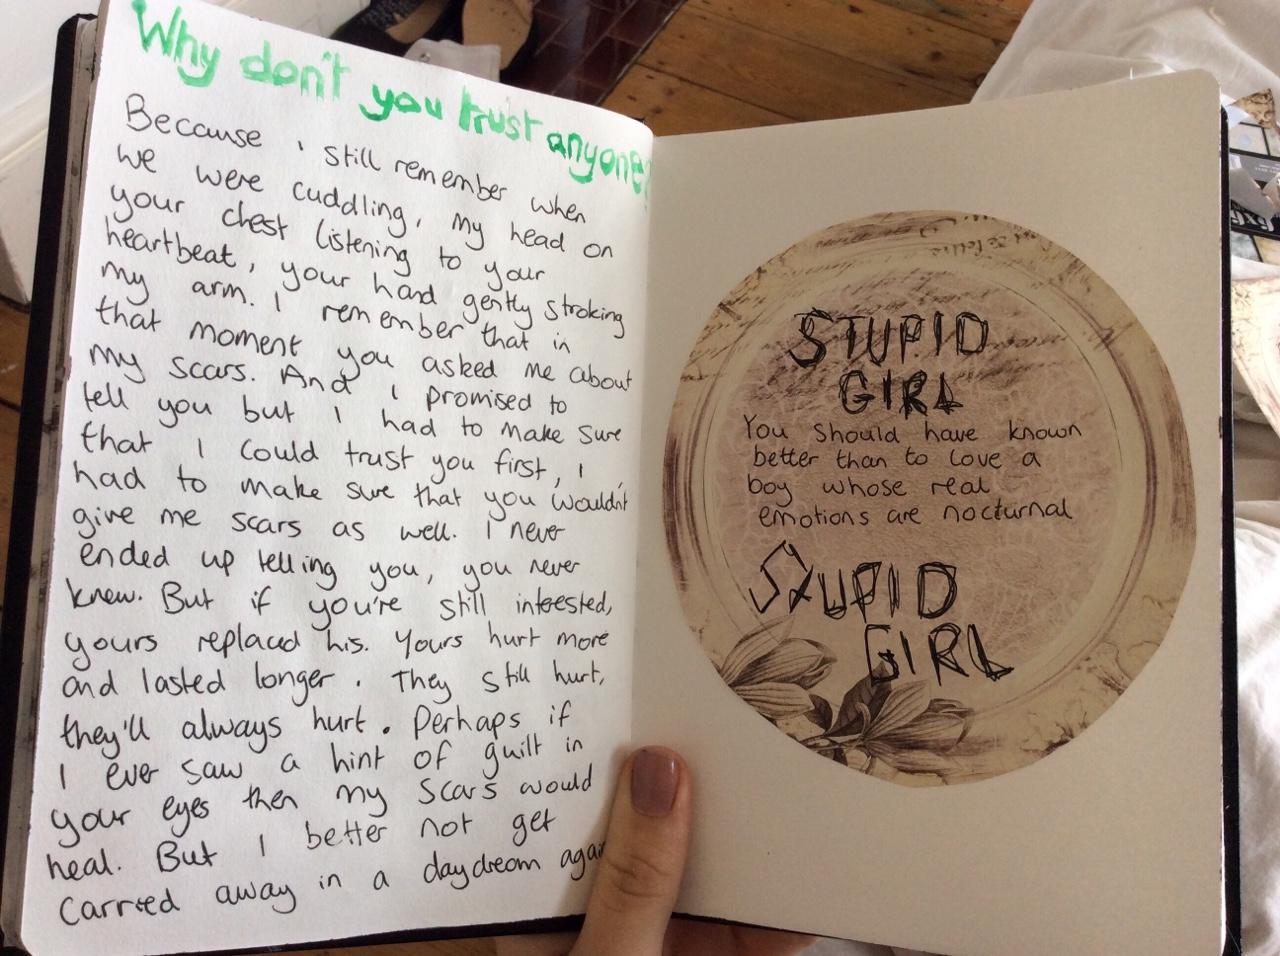 Why don't you trust anyone?
Because i still remember when
we were cuddling, my head on
your chest listening to your
heartbeat, your hand gently stroking
my arm. I remember that in
that moment you asked me about
my scars. And I promised to
tell you but I had to make sure
that I could trust you first, I
had to make sure that you wouldn't
give me scars as well. I never
ended up telling you, you never
knew. But if you're still intersted,
yours replacd his. Yours hurt more
and lasted longer. They still hurt,
they'll always hurt. Perhaps if
I ever saw a hint of guilt in
your eyes then my scars would
heal. But I better not get
carried away in a daydream again
STUPID
GIRL
You should have known
better than to love a
boy whose real
emotions are nocturnal
STUPID
GIRL